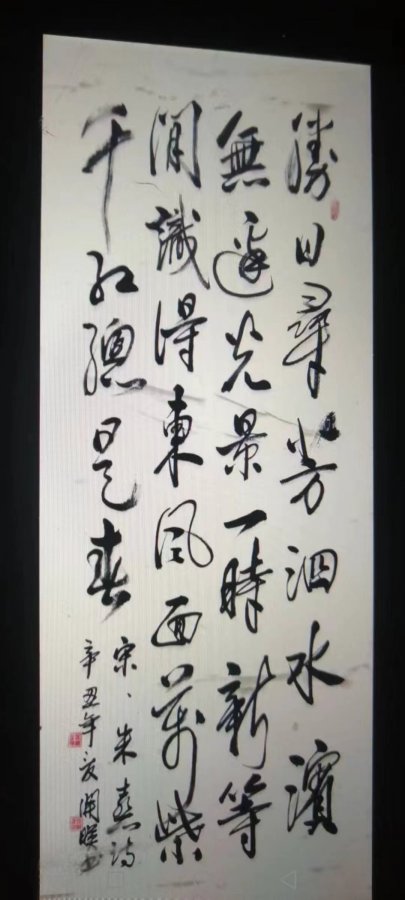 勝日尋芳泗水濱
無邊光景一時新等
閒識得東風面萬紫
千紅總是春
宋、朱熹詩
辛丑年